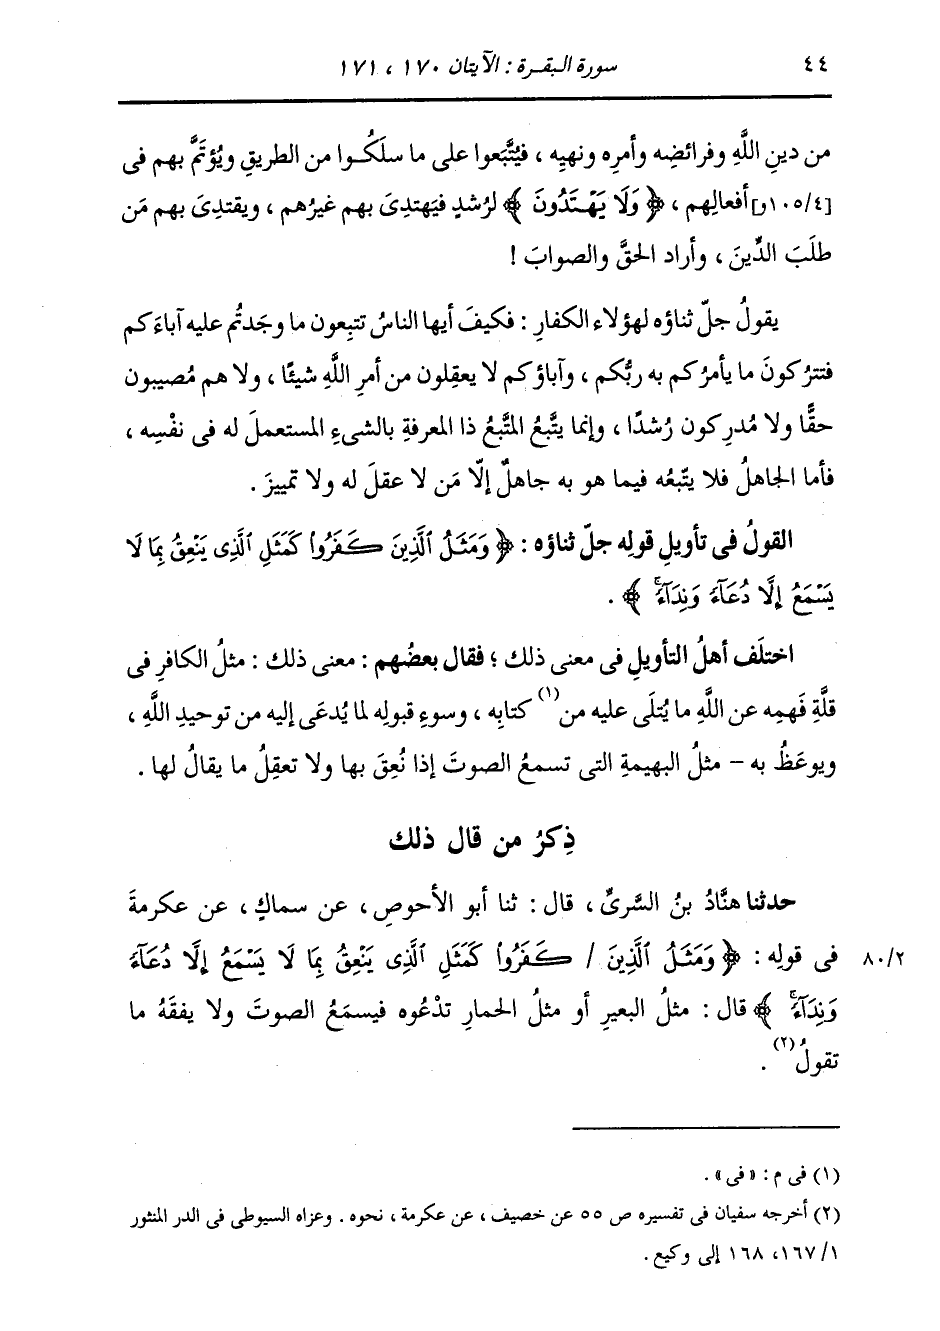 ٤٤ سورة البقرة : الآيتان ١٧٠ ، ١٧١
من دينِ اللَّهِ وفرائضِه وأمرِه ونهيِه ، فيُتَّبَعوا على ما سلَكُوا من الطريقِ ويُؤتَمَّ بهم فى
[٤/١٠٥و] أفعالِهم ، ﴿ وَلَا يَهْتَدُونَ ﴾ لرُشدٍ فيَهتدِىَ بهم غيرُهم ، ويقتدِىَ بهم مَن
طلَبَ الدِّينَ ، وأراد الحقَّ والصوابَ !
يقولُ جلّ ثناؤه لهؤلاء الكفارِ : فكيفَ أيها الناسُ تتبِعون ما وجَدتُم عليه آباءَكم
فتترُكونَ ما يأمرُكم به ربُّكم ، وآباؤكم لا يعقِلون من أمرِ اللَّهِ شيئًا ، ولا هم مُصيبون
حقًّا ولا مُدرِكون رُشدًا ، وإنما يتَّبعُ المتَّبعُ ذا المعرفةِ بالشىءِ المستعملَ له فى نفْسِه ،
فأما الجاهلُ فلا يتّبعُه فيما هو به جاهلٌ إلّا مَن لا عقلَ له ولا تمييزَ .
القولُ فى تأويلِ قولِه جلّ ثناؤه : ﴿ وَمَثَلُ الَّذِينَ كَفَرُوا كَمَثَلِ الَّذِى يَنْعِقُ بِمَا لَا
يَسْمَعُ إِلَّا دُعَآءً وَنِدَآءً ﴾ .
اختلَف أهلُ التأويلِ فى معنى ذلك ؛ فقال بعضُهم : معنى ذلك : مثلُ الكافرِ فى
قلَّةِ فَهمِه عن اللَّهِ ما يُتلَى عليه من(١) كتابِه ، وسوءِ قبولِه لما يُدعَى إليه من توحيدِ اللَّهِ ،
ويوعَظُ به - مثلُ البهيمةِ التى تسمعُ الصوتَ إذا نُعِقَ بها ولا تعقِلُ ما يقالُ لها .
ذِكرُ من قال ذلك
حدثنا هنَّادُ بنُ السَّرىِّ ، قال : ثنا أبو الأحوصِ ، عن سماكٍ ، عن عكرمةَ
٨٠/٢ فى قولِه : ﴿ وَمَثَلُ الَّذِينَ / كَفَرُوا كَمَثَلِ الَّذِى يَنْعِقُ بِمَا لَا يَسْمَعُ إِلَّا دُعَآءً
وَنِدَآءً ﴾ قال : مثلُ البعيرِ أو مثلُ الحمارِ تدْعُوه فيسمَعُ الصوتَ ولا يفقَهُ ما
تقولُ(٢) .
(١) فى م : « فى » .
(٢) أخرجه سفيان فى تفسيره ص ٥٥ عن خصيف ، عن عكرمة ، نحوه . وعزاه السيوطى فى الدر المنثور
١/ ١٦٧، ١٦٨ إلى وكيع .